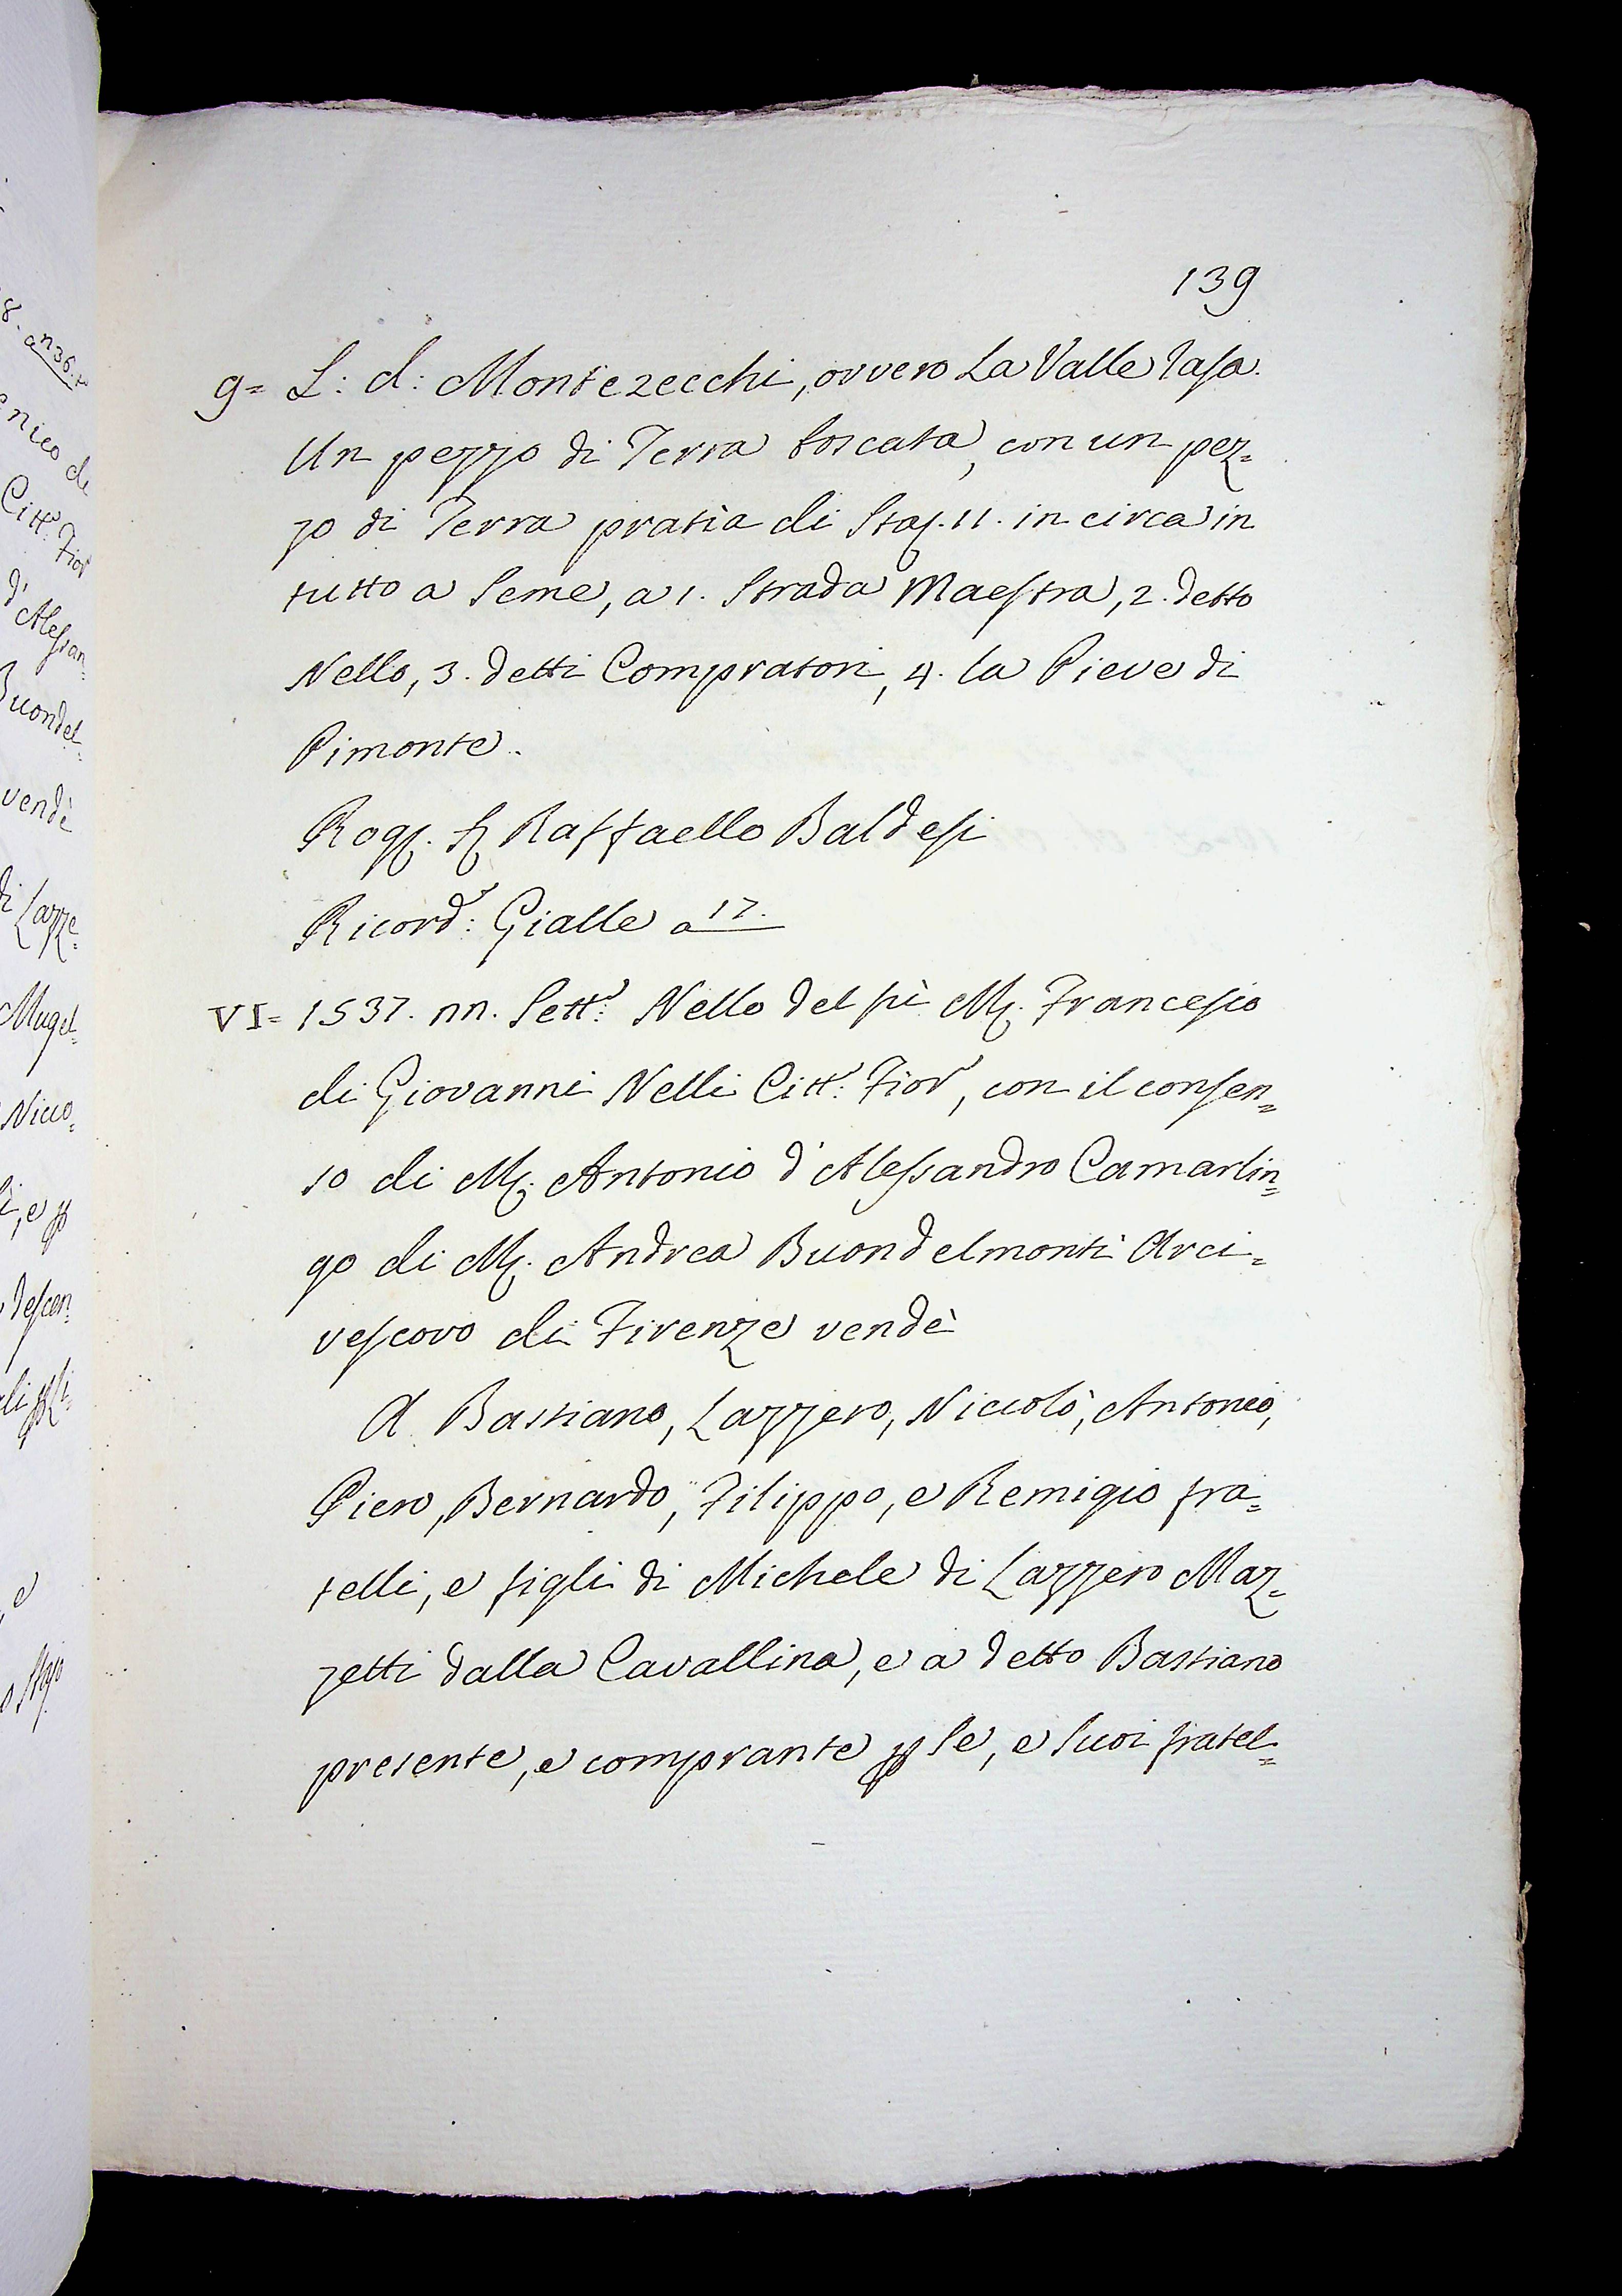 139
9= L: d: Montezecchi, ovvero La Valle Tasa.
Un pezzo di Terra boscata, con un pez=
zo di Terra pratìa di Staj. 11. in circa in
tutto a Seme, a 1. Strada Maestra, 2. detto
Nello, 3. detti Compratori, 4. la Pieve di
Pimonte.
Rog. S. Raffaello Baldesi
Ricord: Gialle a 17.
VI= 1537. nn. Sett: Nello del fù M. Francesco
di Giovanni Nelli Citt: Fior, con il consen=
so di M. Antonio d'Alessandro Camarlin=
go di M. Andrea Buondelmonti Arci=
vescovo di Firenze vendè
A Bastiano, Lazzero, Niccolò, Antonio,
Piero, Bernardo, Filippo, e Remigio fra=
telli, e figli di Michele di Lazzero Maz=
zetti dalla Cavallina, e a detto Bastiano
presente, e comprante p Se, e Suoi fratel=
8. a n 36. t
enico di
Citt: Fior
d'Alessan=
Buondel=
vendè
di Lazze=
Mugel=
Nicco=
i, e p
descen=